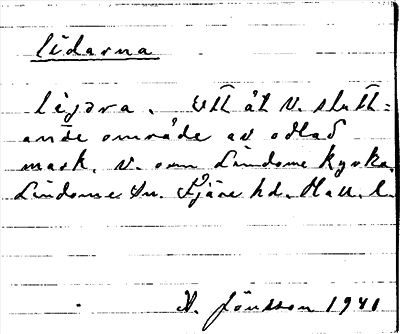 lidarna
liʒərna. Ett åt V. slutt=
ande område av odlad
mark. V. om Lindome kyrka.
Lindome sn. Fjäre hd. Hall. l.
A. Jönsson 1941